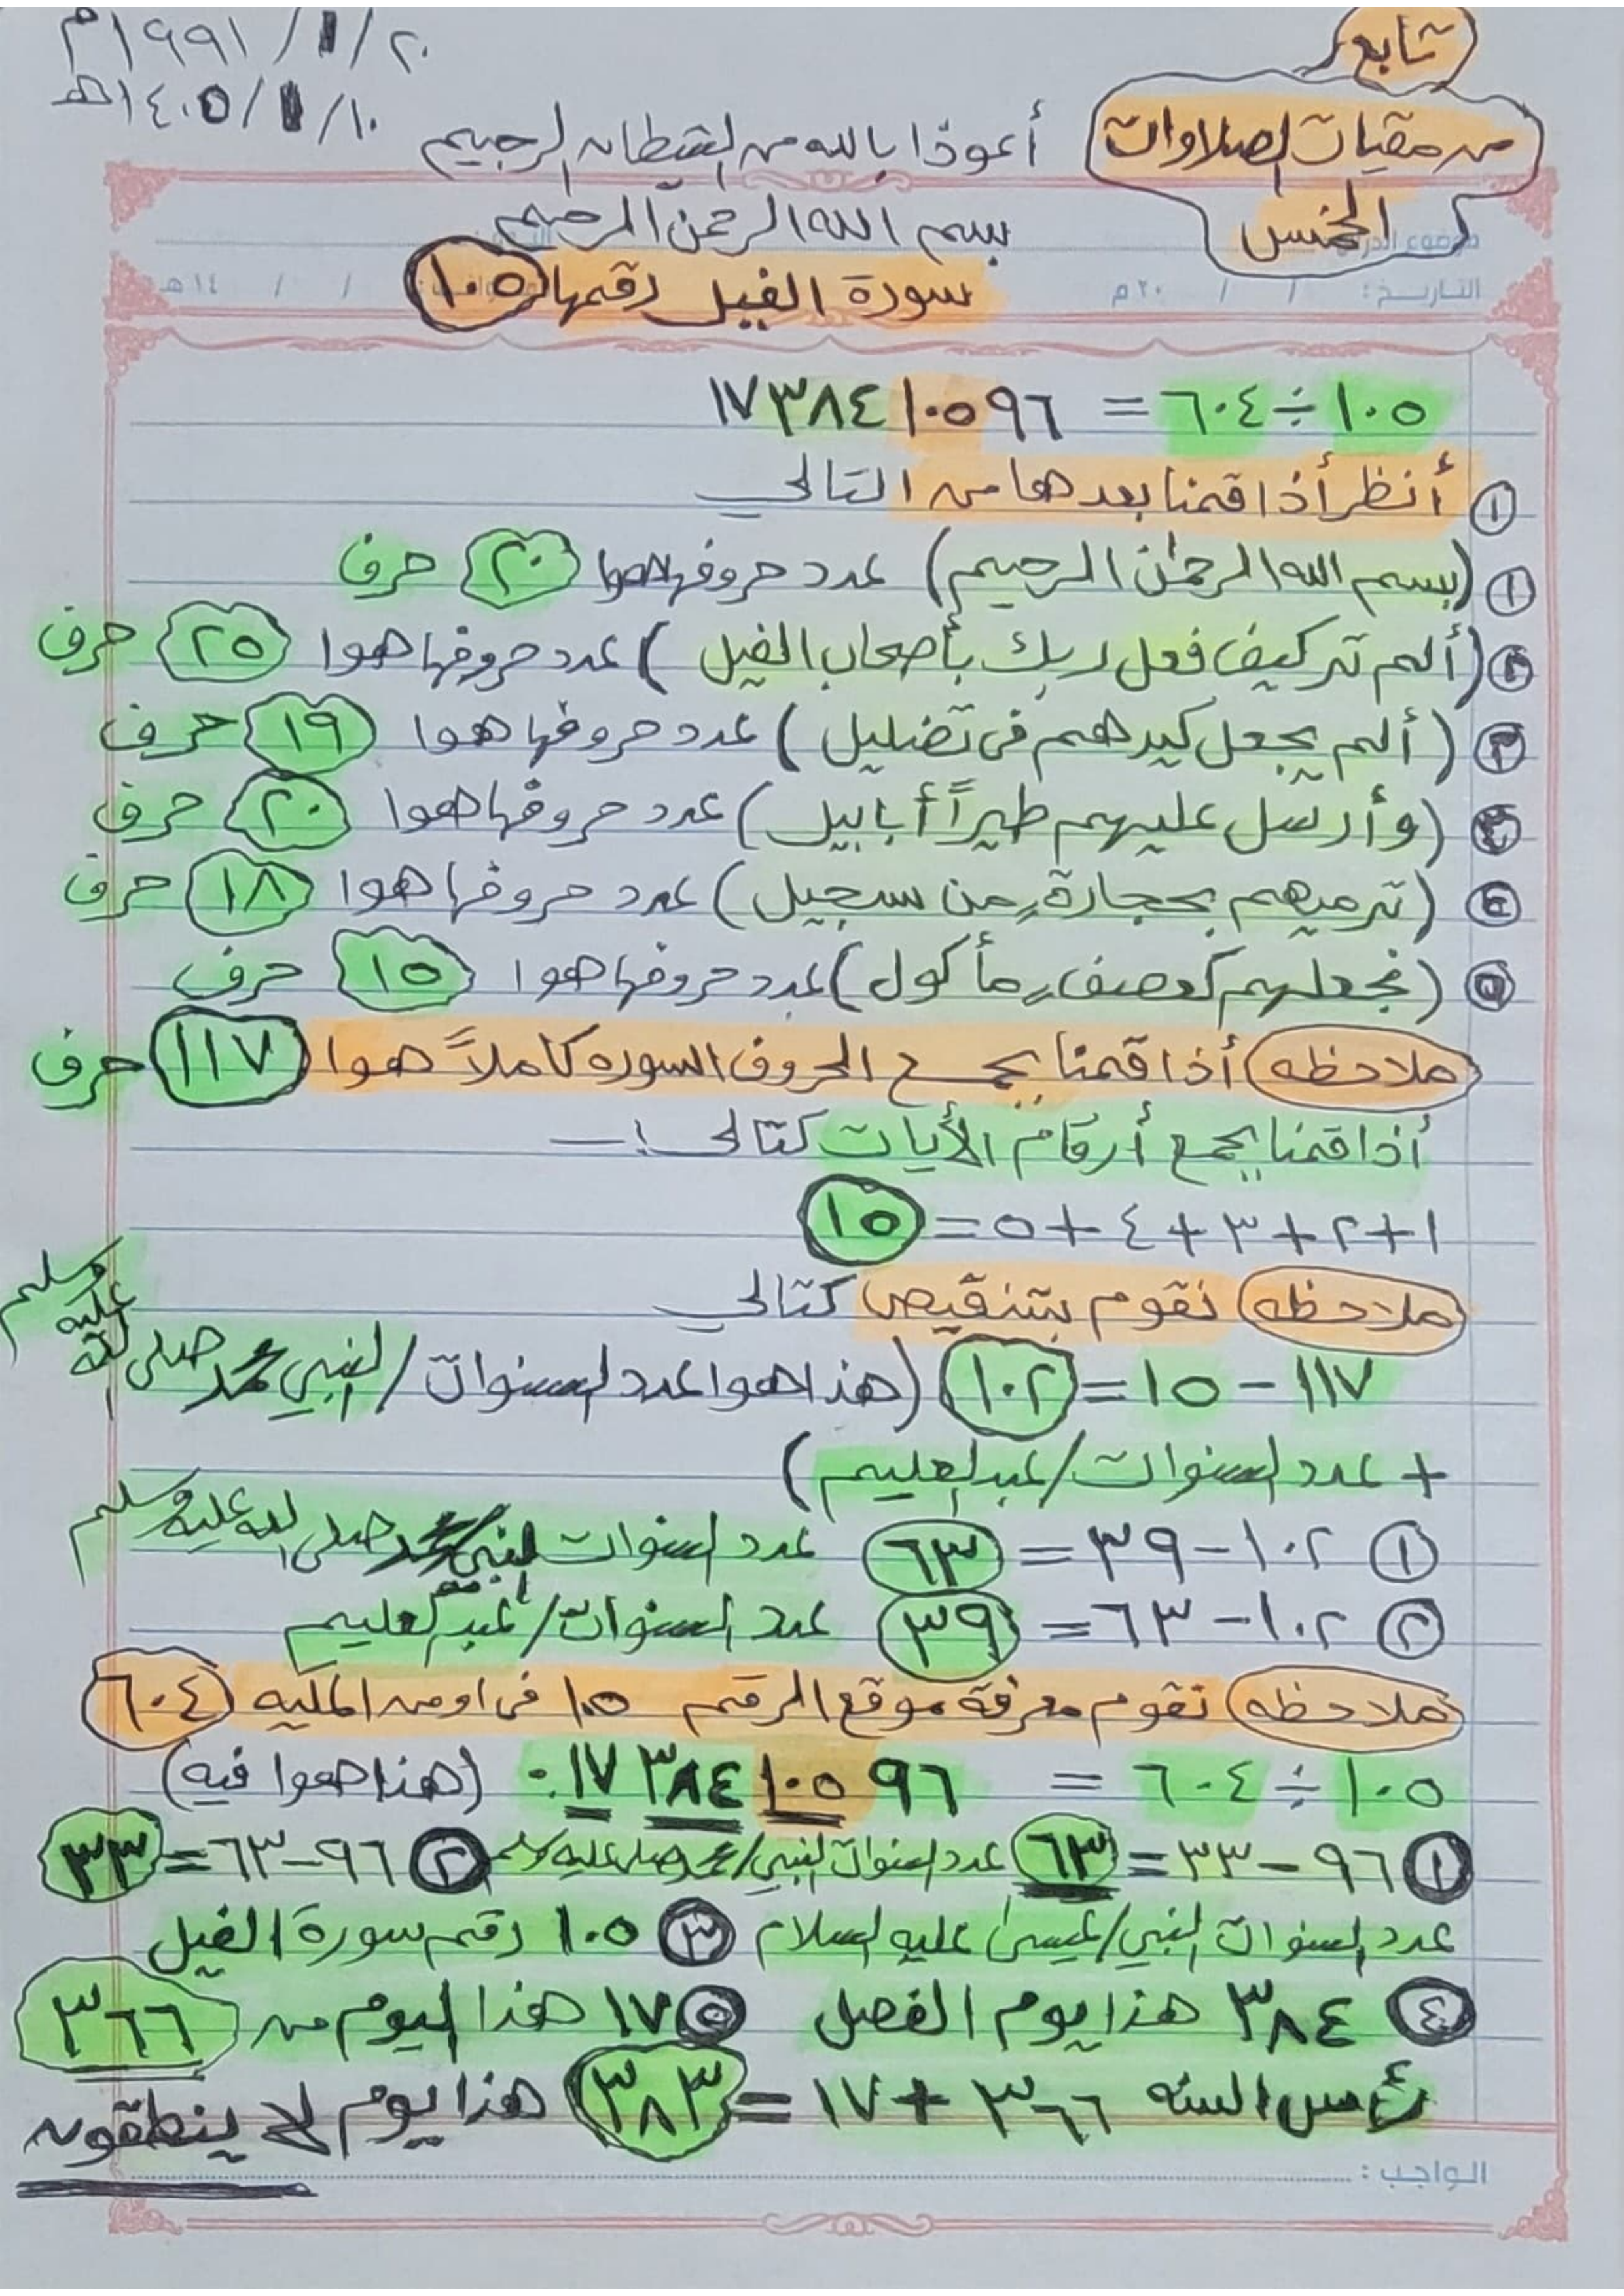 تابع
من مقيات الصلاوات
الخمس
٢٠/١/١٩٩١م
١٠/١/١٤٠٥هـ
أعوذا بالله من الشيطان الرجيم
بسم الله الرحمن الرحيم
موضوع الدرس
سورة الفيل رقمها ١٠٥
التاريخ: / / ٢٠م / / ١٤هـ
١٠٥ ÷ ٦٠٤ = ١٧٣٨٤١٠٥٩٦
١ أنظر أذا قمنا بعدها من التالي
١ (بسم الله الرحمٰن الرحيم) عدد حروفها هوا ٢٠ حرف
٢ (ألم تر كيف فعل ربك بأصحاب الفيل) عدد حروفها هوا ٢٥ حرف
٣ (ألم يجعل كيدهم في تضليل) عدد حروفها هوا ١٩ حرف
٣ (وأرسل عليهم طيراً أبابيل) عدد حروفها هوا ٢٠ حرف
٤ (ترميهم بحجارة من سجيل) عدد حروفها هوا ١٨ حرف
٥ (فجعلهم كعصف مأكول) عدد حروفها هوا ١٥ حرف
ملاحظه أذا قمنا بجمع الحروف السوره كاملاً هوا ١١٧ حرف
أذا قمنا بجمع أرقام الأيات كتالي:-
١+٢+٣+٤+٥=١٥
ملاحظه نقوم بتنقيص كتالي
١١٧-١٥=١٠٢ (هذا هوا عدد السنوات/النبي محمد صلى الله عليه وسلم
+ عدد السنوات/عبدالعليم)
١ ١٠٢-٣٩=٦٣ عدد السنوات النبي/محمد صلى الله عليه وسلم
٢ ١٠٢-٦٣=٣٩ عدد السنوات/عبدالعليم
ملاحظه نقوم معرفة موقع الرقم ١٠٥ في او من المليه ٦٠٤
١٠٥ ÷ ٦٠٤ = ٠١٧٣٨٤١٠٥٩٦ (هذا هوا فيه)
١ ٩٦-٣٣=٦٣ عدد السنوات النبي/محمد صلى عليه وسلم ٢ ٩٦-٦٣=٣٣
عدد السنوات النبي/عيسىٰ عليه السلام ٣ ١٠٥ رقم سورة الفيل
٤ ٣٨٤ هذا يوم الفصل ٥ ١٧ هذا اليوم من ٣٦٦
رأس السنه ٣٦٦+١٧=٣٨٣ هذا يوم لا ينطقون
الواجب: